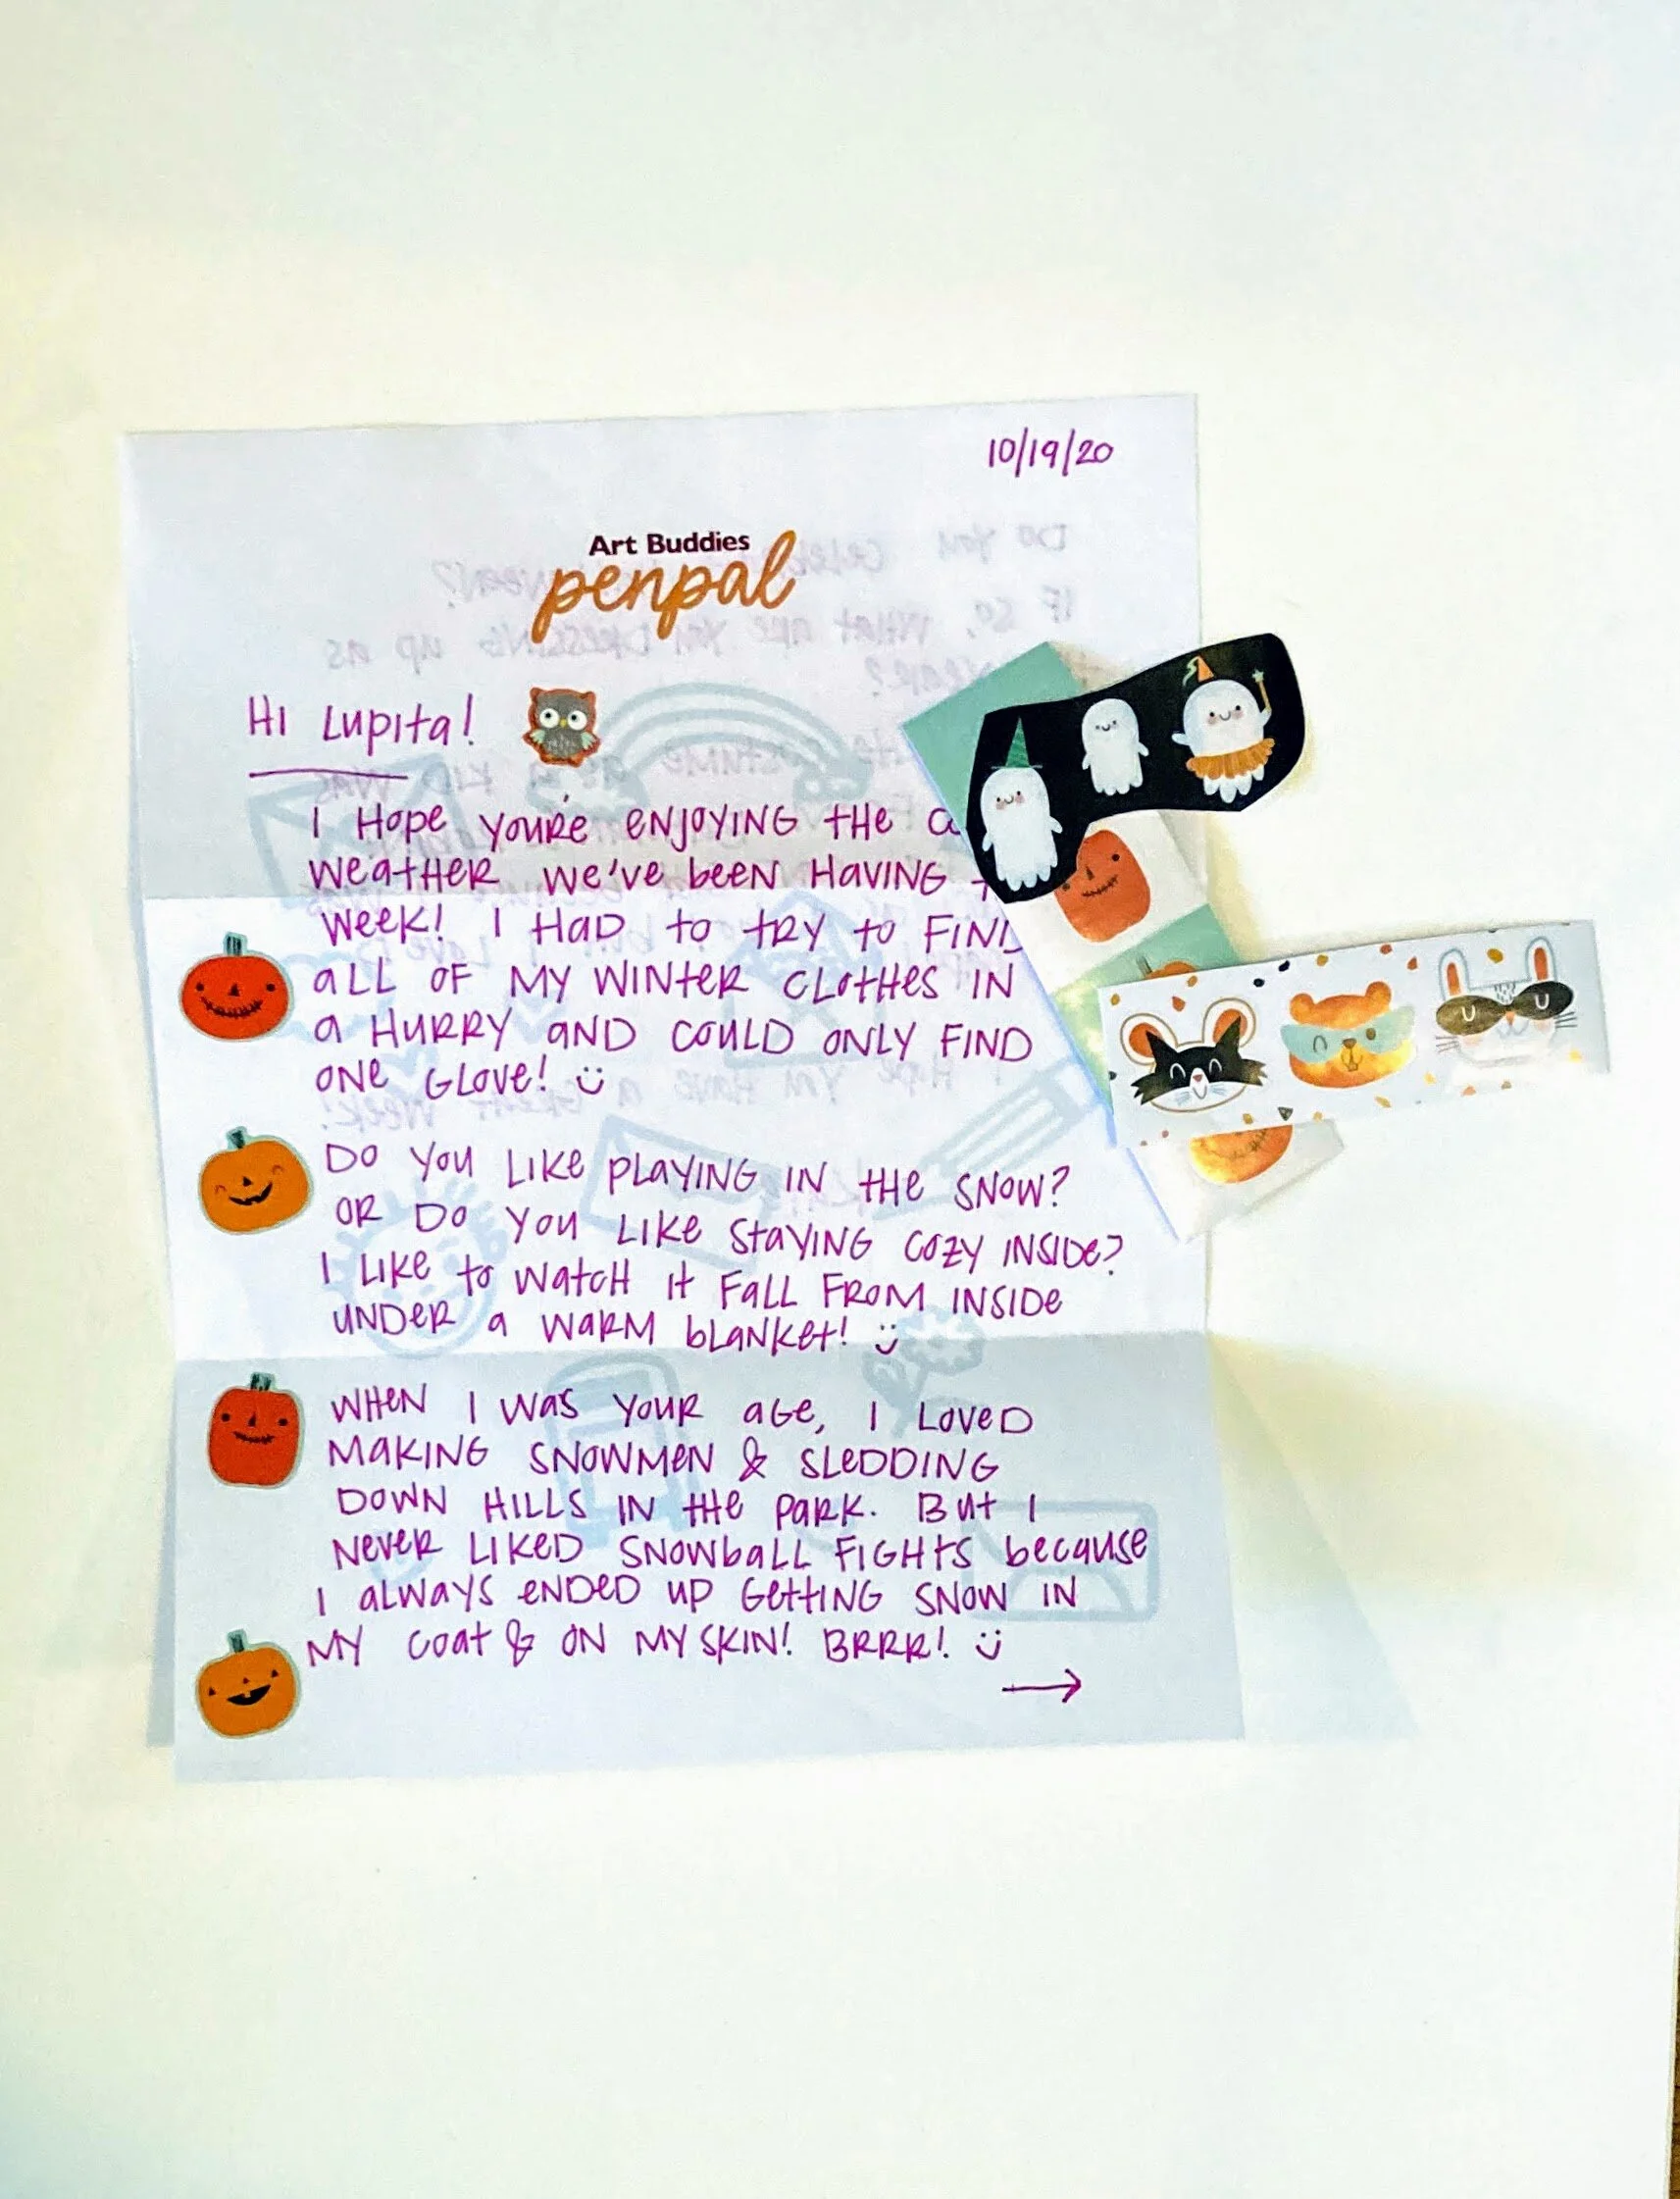 10/19/20
Art Buddies
penpal
Hi Lupita!
I Hope you're enjoying the
weather we've been having
week! I had to try to find
all of my winter clothes in
a hurry and could only find
one glove! :)
Do you like playing in the snow?
Or do you like staying cozy inside?
I like to watch it fall from inside
under a warm blanket! :)
When I was your age, I loved
making snowmen & sledding
down hills in the park. But I
never liked snowball fights because
I always ended up getting snow in
my coat & on my skin! Brrr! :)
→